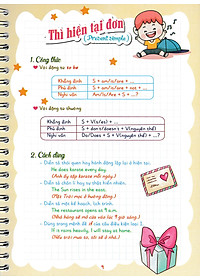 Thì hiện tại đơn
(Present simple)
1. Công thức
Với động từ to be
Khẳng định S + am/is/are + ...
Phủ định S + am/is/are + not + ...
Nghi vấn Am/Is/Are + S + ...?
Với động từ thường
Khẳng định S + V(s/es) + ...
Phủ định S + don't/doesn't + V(nguyên thể)
Nghi vấn Do/Does + S + V(nguyên thể)?
2. Cách dùng
- Diễn tả thói quen hay hành động lặp lại ở hiện tại.
He does karate every day.
(Anh ấy tập karate mỗi ngày.)
- Diễn tả chân lí hay sự thật hiển nhiên.
The Sun rises in the east.
(Mặt Trời mọc ở hướng đông.)
- Diễn tả một kế hoạch, lịch trình.
The restaurant opens at 9 a.m.
(Nhà hàng sẽ mở cửa vào lúc 9 giờ sáng.)
- Dùng trong mệnh đề if của câu điều kiện loại I.
If it rains heavily, I will stay at home.
(Nếu trời mưa to, tôi sẽ ở nhà.)